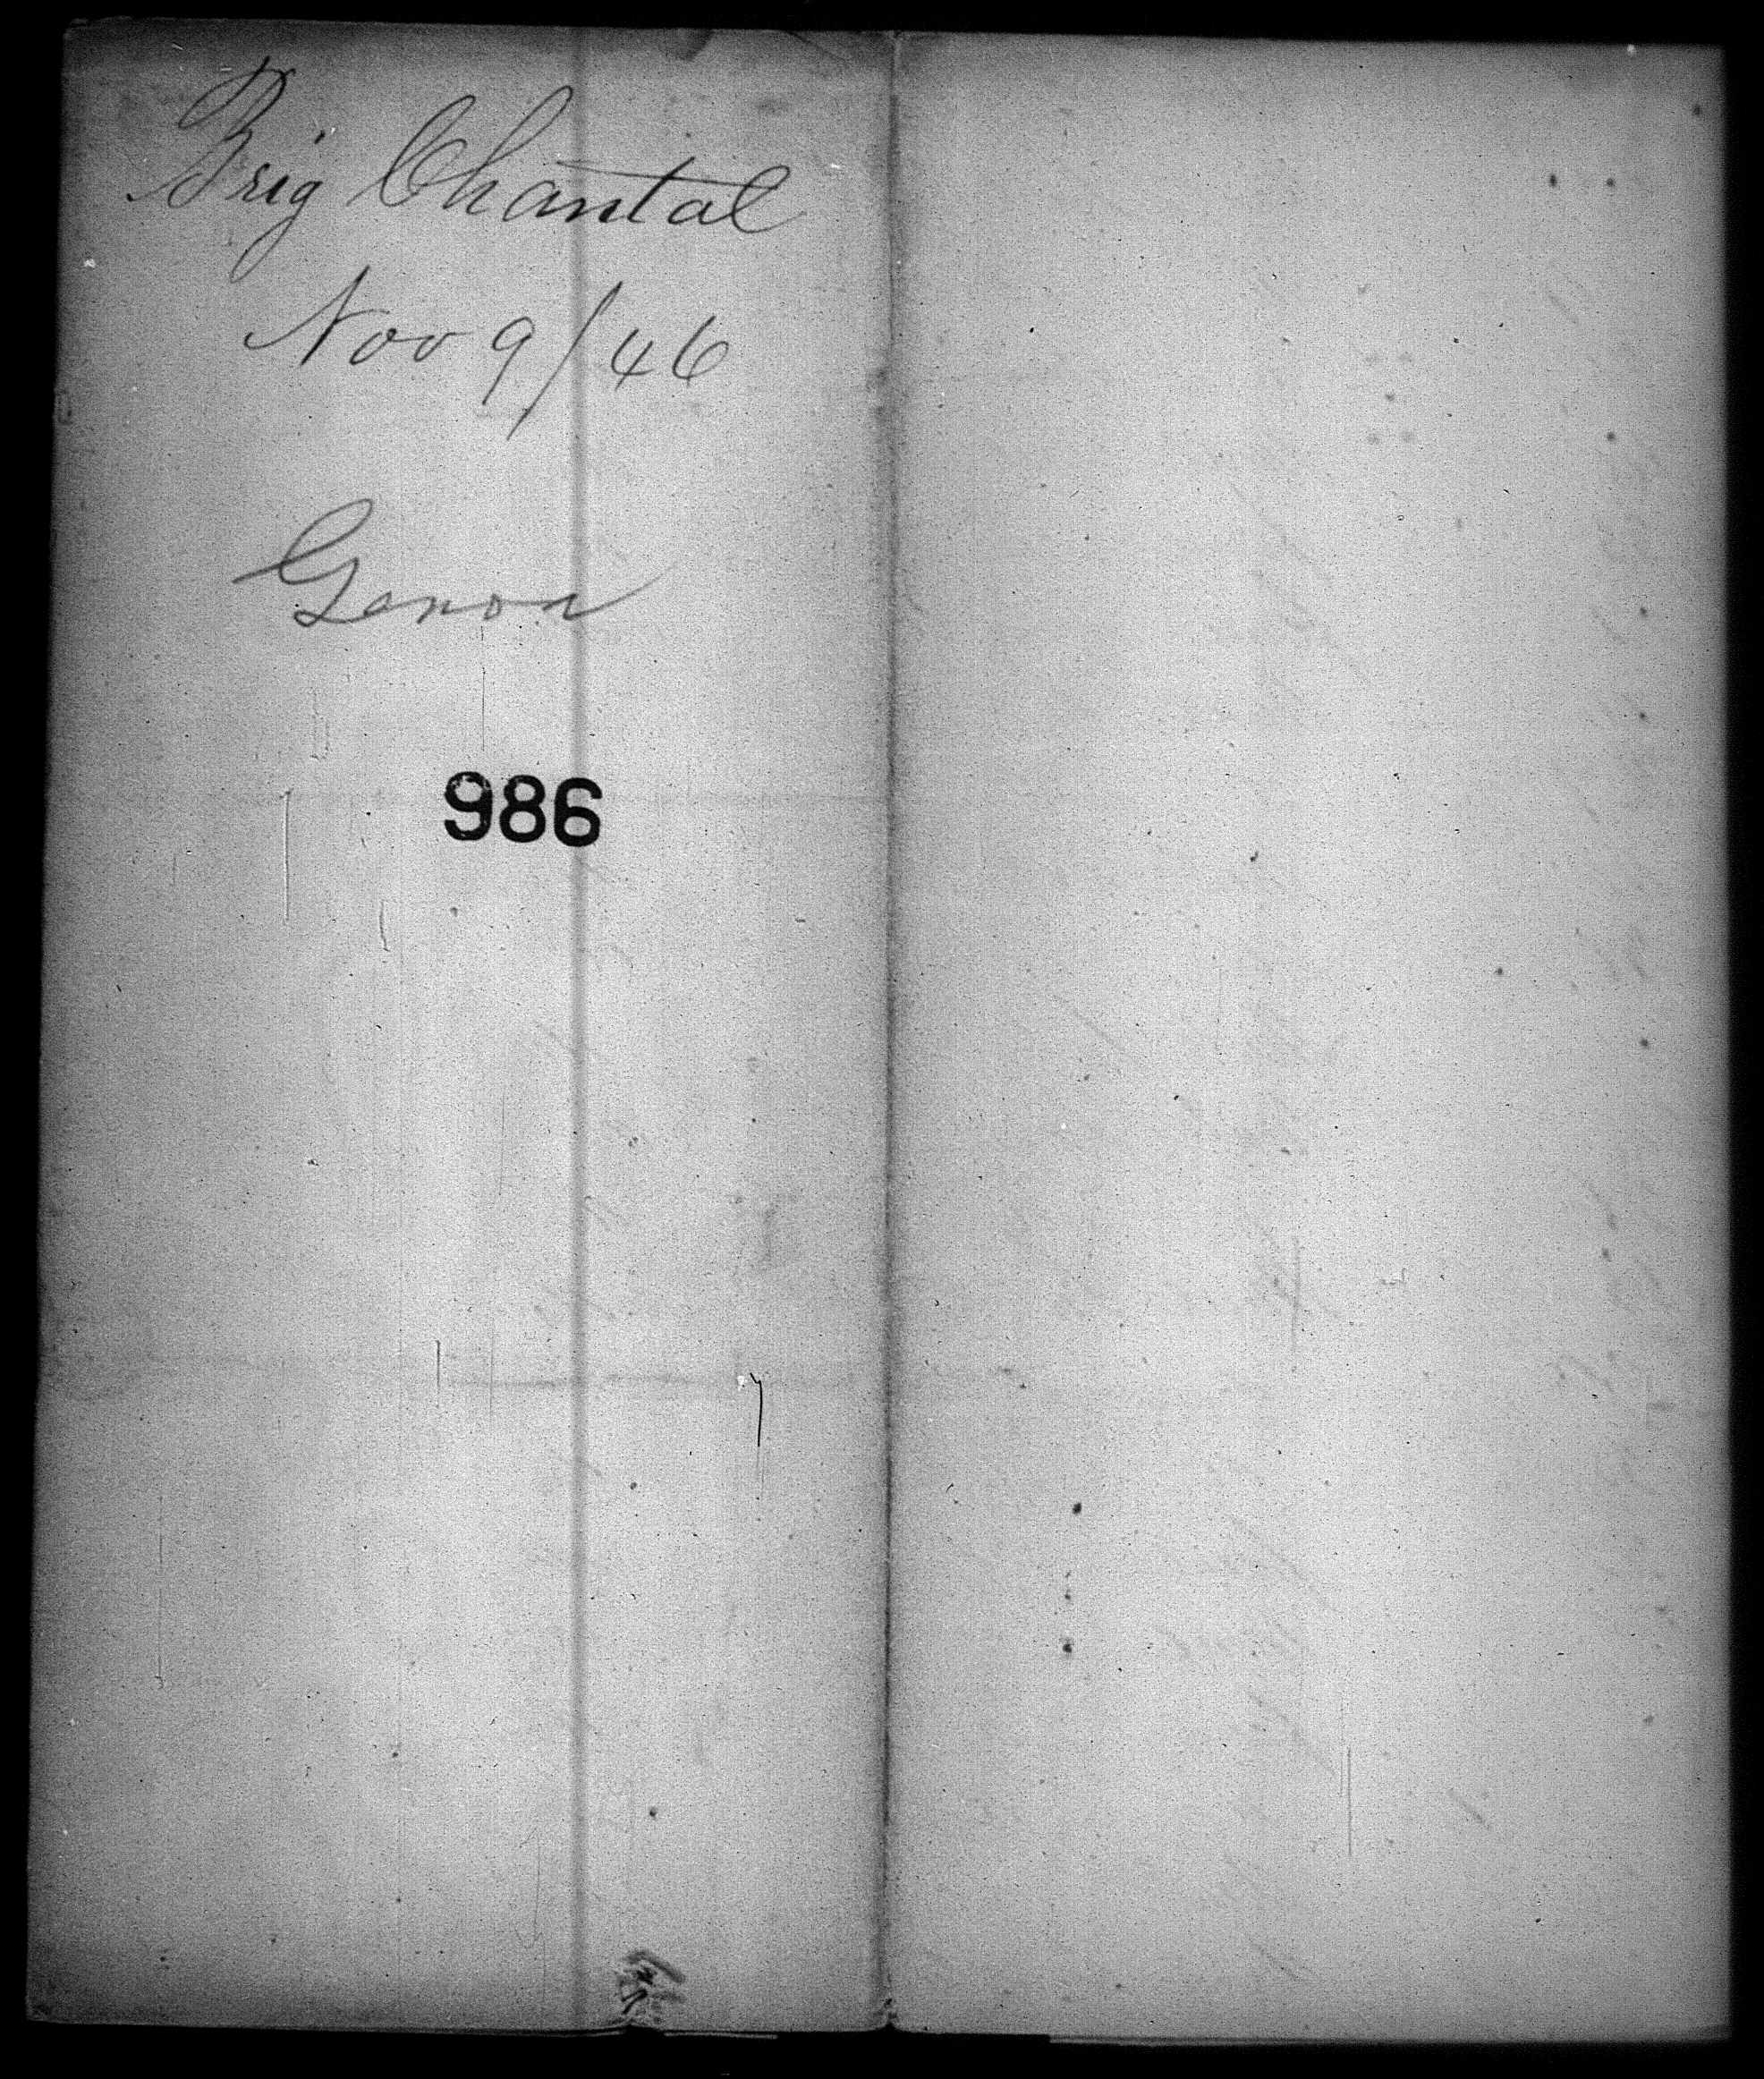 Brig Chantal
Nov 9/46
Genoa
986